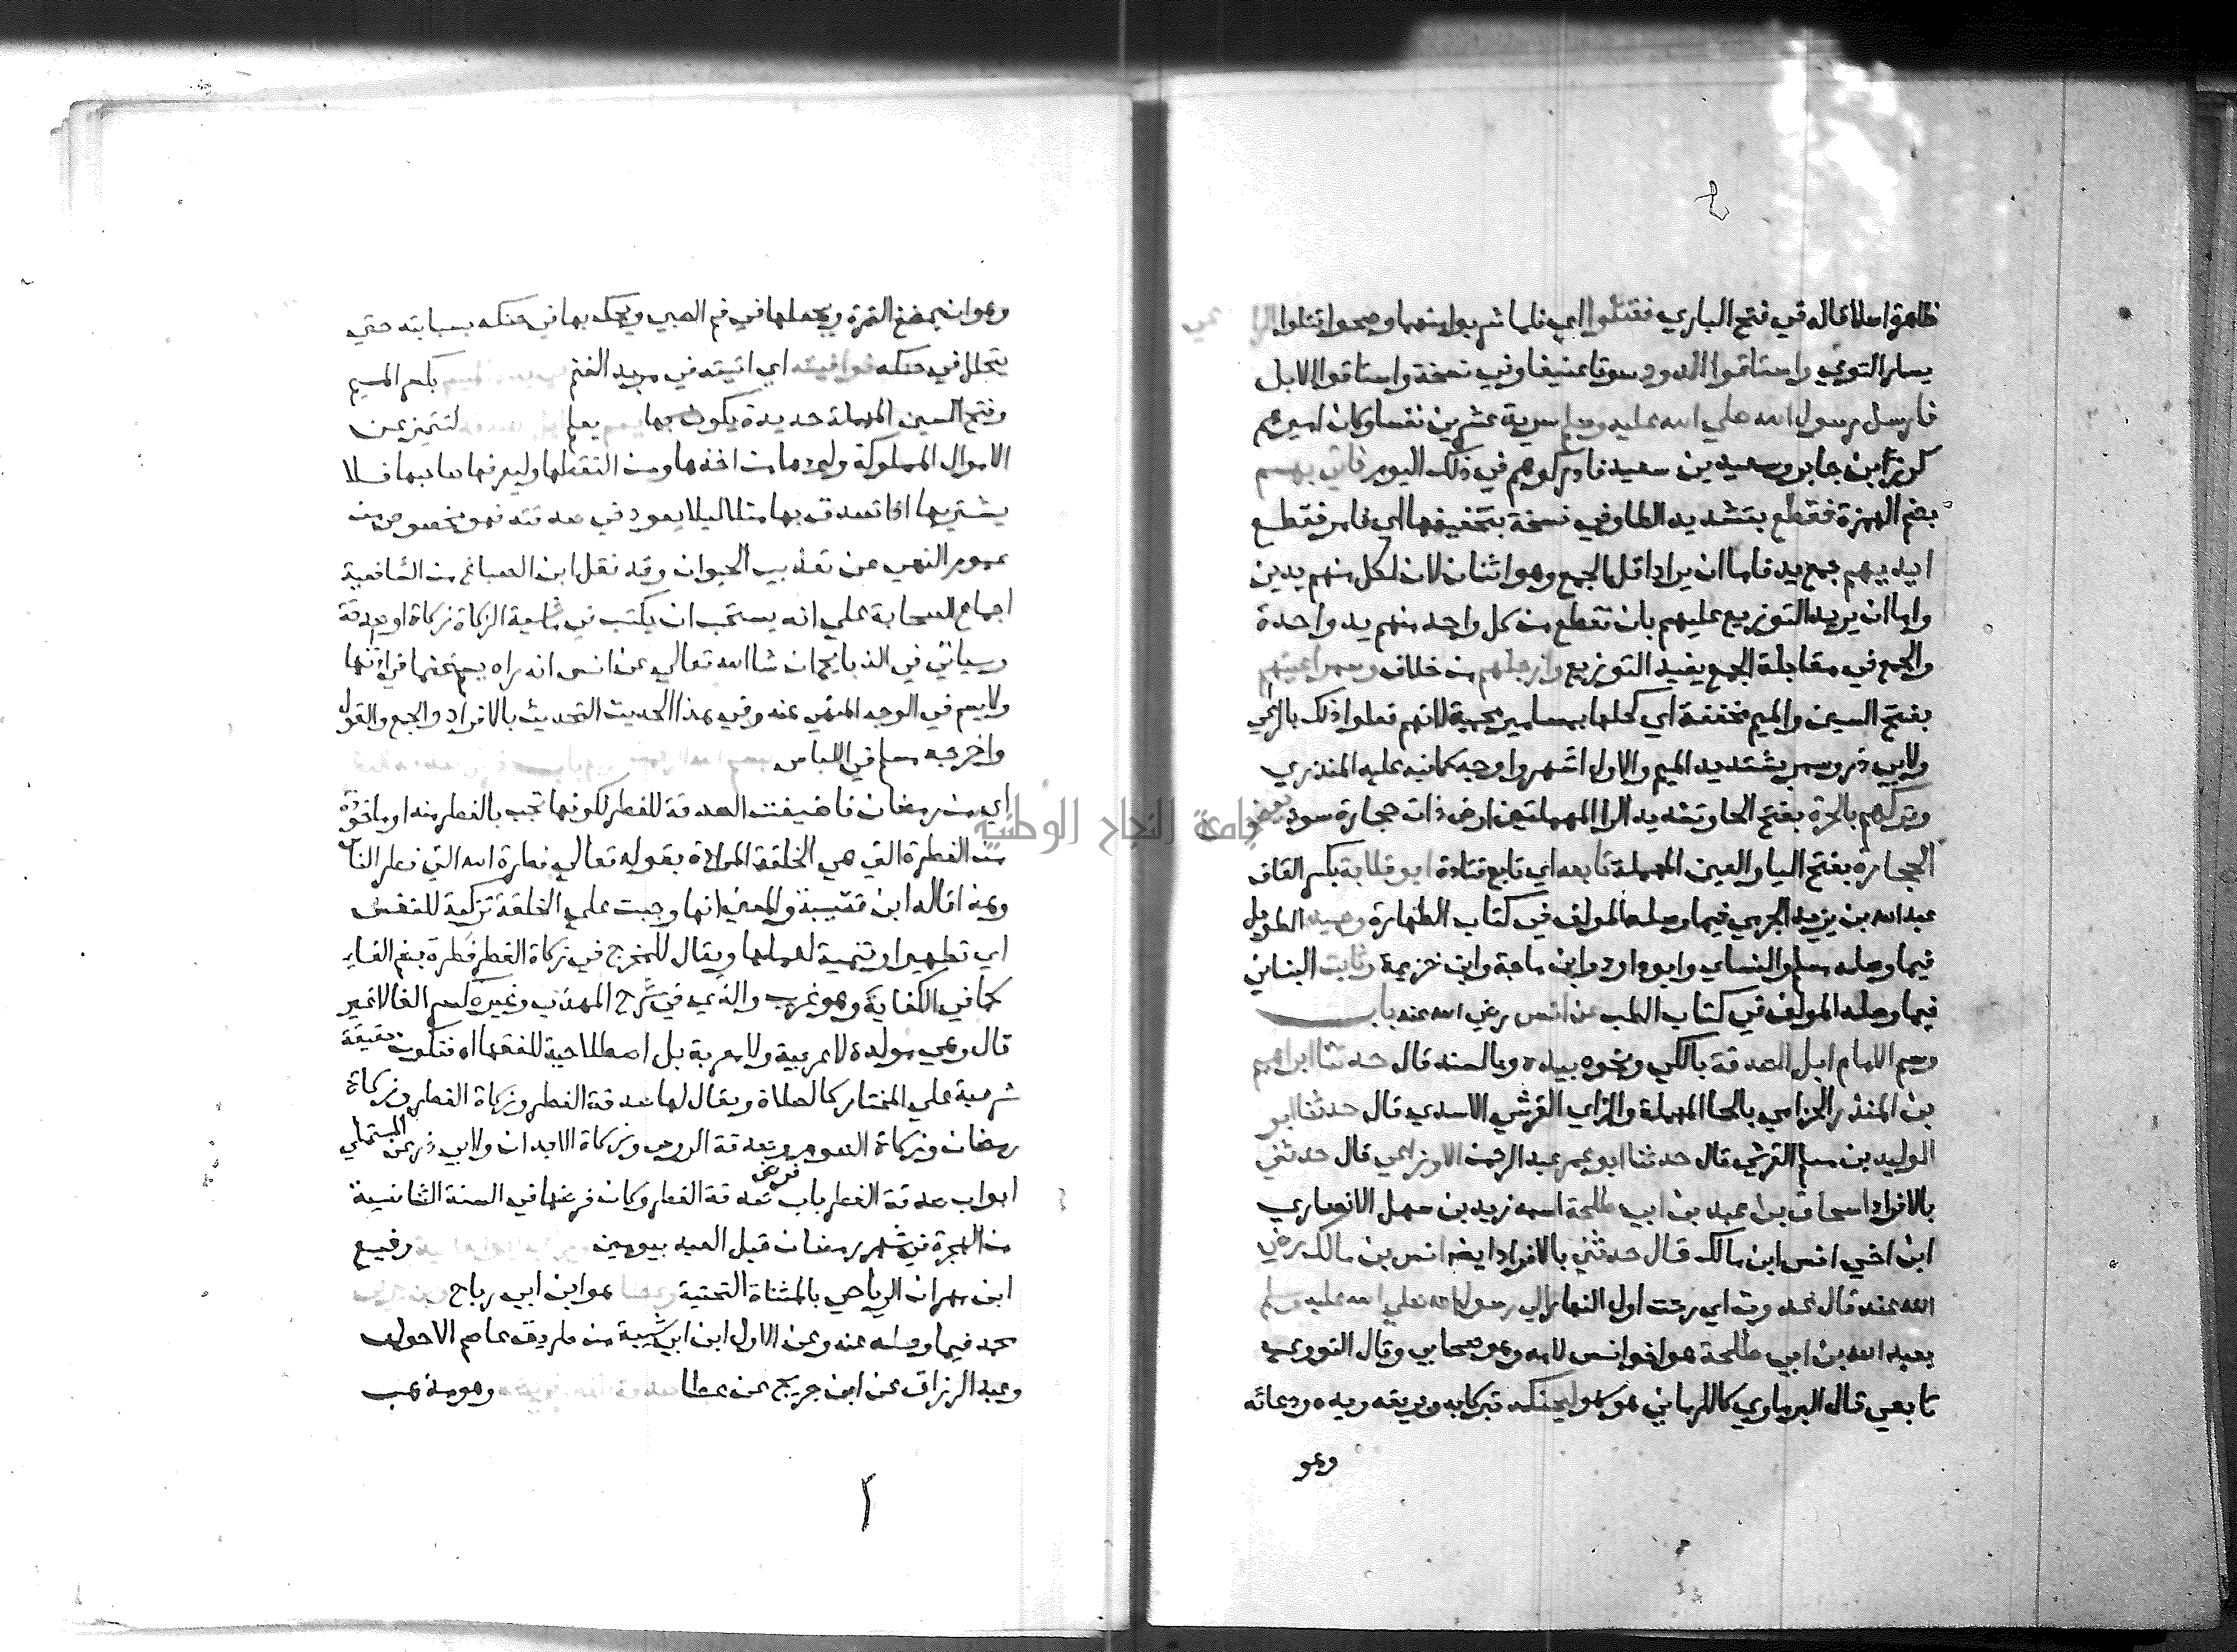 ظاهرا اصلا قاله في فتح الباري فقتلوا اي فلما شربوا منها وصحوا قتلوا الراعي
يسار النوبي واستاقوا الذود سوقا عنيفا وفي نسخة واستاقوا الابل
فارسل رسول الله صلي الله عليه وسلم سرية عشرين نفسا وكان اميرهم
كرز ابن جابر وسعيد بن سعيد فادركوهم في ذلك اليوم فاتي بهم
بضم الهمزة فقطع بتشديد الطا وفي نسخة بتخفيفها اي فامر فقطع
ايديهم جمع يد فاما ان يراد اقل الجمع وهو اثنان لان لكل منهم يدين
واما ان يريد التوزيع عليهم بان تقطع من كل واحد منهم يد واحدة
والجمع في مقابلة الجمع يفيد التوزيع وارجلهم من خلاف وسمر اعينهم
بفتح السين والميم مخففة اي كحلها بمسامير محمية لانهم فعلوا ذلك بالراعي
ولابي ذر وسمر بتشديد الميم والاول اشهر واوجه كما نبه عليه المنذري
وتركهم بالحرة بفتح الحا وتشديد الرا المهملتين ارض ذات حجارة سود يعضون
الحجارة بفتح اليا والعين المهملة تابعه اي تابع قتادة ابو قلابة بكسر القاف
عبد الله بن يزيد الجرمي فيما وصله المولف في كتاب الطهارة وحميد الطويل
فيما وصله مسلم والنساي وابو داود وابن ماجة وابن خزيمة وثابت البناني
فيما وصله المولف في كتاب الطب عن انس رضي الله عنه باب
وسم الامام ابل الصدقة بالكي ونحوه بيده وبالسند قال حدثنا ابراهيم
بن المنذر الحزامي بالحا المهملة والزاي القرشي الاسدي قال حدثنا ابو
الوليد بن مسلم القرشي قال حدثنا ابو عمر عبد الرحمن الاوزاعي قال حدثني
بالافراد اسحاق بن عبد بن ابي طلحة اسمه زيد بن سهل الانصاري
ابن اخي انس ابن مالك قال حدثني بالافراد ايضا انس بن مالك رضي
الله عنه قال غدوت اي رحت اول النهار الي رسول الله صلي الله عليه وسلم
بعبد الله بن ابي طلحة هو اخو انس لامه وهو صحابي وقال النووي
تابعي قال البرماوي كالكرماني هو سهو ليحنكه تبركا به وبريقه ويده ودعائه
وهو
وهو ان يمضغ التمرة ويجعلها في فم الصبي ويحك بها في حنكه بسبابته حتي
يتحلل في حنكه فوافيته اي اتيته في مربد الغنم بكسر الميم
وفتح السين المهملة حديدة يكوي بها يعلم لتتميز عن
الاموال المملوكة وليردها من اخذها ومن التقطها وليعرفها صاحبها فلا
يشتريها اذا تصدق بها مثلا ليلا يعود في صدقته فهو مخصوص من
عموم النهي عن تعذيب الحيوان وقد نقل ابن الصباغ من الشافعية
اجماع الصحابة علي انه يستحب ان يكتب في ماشية الزكاة زكاة او صدقة
وسياتي في الذبايح ان شا الله تعالي عن انس انه راه يسم غنما في اذنها
ولا يسم في الوجه المنهي عنه وفي هذا الحديث التحديث بالافراد والجمع والقول
واخرجه مسلم في اللباس
اي من رمضان فاضيفت الصدقة للفطر لكونها تجب بالفطر منه او ماخوذة
من الفطرة التي هي الخلقة المرادة بقوله تعالي فطرة الله التي فطر الناس
وهذا قاله ابن قتيبة والمعني انها وجبت علي الخلقة تزكية للنفس
اي تطهيرا وتنمية لعملها ويقال للمخرج في زكاة الفطر فطرة بضم الفاء
كما في الكفاية وهو غريب والذي في شرح المهذب وغيره كسر الفا لا غير
قال وهي مولدة لا عربية ولا معربة بل اصطلاحية للفقها اه فتكون حقيقة
شرعية علي المختار كالصلاة ويقال لها صدقة الفطر وزكاة الفطر وزكاة
رمضان وزكاة الصوم وصدقة الروس وزكاة الابدان ولابي ذر عن المستملي
ابواب صدقة الفطر باب فرض صدقة الفطر وكان فرضها في السنة الثانية
من الهجرة في شهر رمضان قبل العيد بيومين رفيع
ابن مهران الرياحي بالمثناة التحتية وعطا هو ابن ابي رباح
محمد فيما وصله عنه وعن الاول ابن ابي شيبة من طريق عاصم الاحول
وعبد الرزاق عن ابن جريج عن عطا وهو مذهب
جامعة النجاح الوطنية